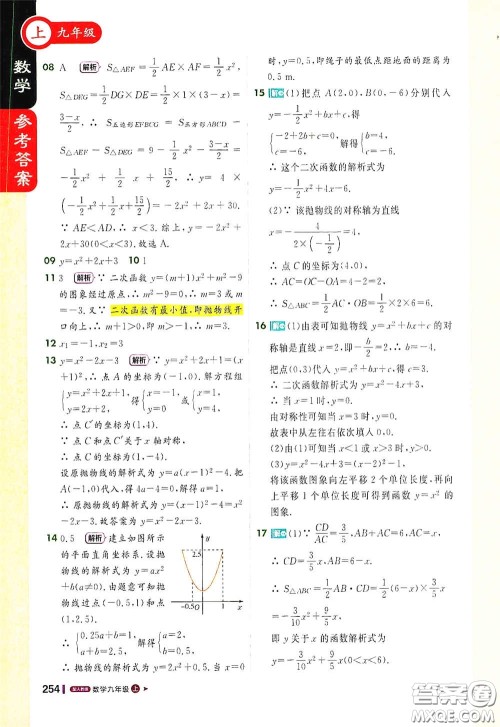 上 九年级
数学
参考答案
08 A 解析 S△AEF=1/2 AE×AF=1/2x²,
S△DEG=1/2 DG×DE=1/2×1×(3-x)=
(3-x)/2, ∴ S五边形EFBCG=S正方形ABCD-
S△AEF-S△DEG=9-1/2x²-(3-x)/2=
-1/2x²+1/2x+15/2, ∴ y=4×
(-1/2x²+1/2x+15/2)=-2x²+
2x+30(0<x<3). 故选 A.
09 y=x²+2x+3 10 1
11 3 解析 ∵ 二次函数 y=(m+1)x²+m²-9
的图象经过原点, ∴ m²-9=0, ∴ m=3 或 m
=-3. 又∵ 二次函数有最小值, 即抛物线开
口向上, ∴ m+1>0, 即 m>-1, ∴ m=3.
12 x₁=-1, x₂=3
13 y=x²-2x-3 解析 ∵ y=x²+2x+1=(x+
1)², ∴ 点 A 的坐标为(-1,0). 解方程组
{y=x²+2x+1, y=2x+2, 得{x=-1, y=0 或{x=1, y=4,
∴ 点 C′的坐标为(1,4).
∵ 点 C 和点 C′关于 x 轴对称,
∴ 点 C 的坐标为(1,-4).
设原抛物线的解析式为 y=a(x-1)²-4, 把
(-1,0)代入, 得 4a-4=0, 解得 a=1.
∴ 原抛物线的解析式为 y=(x-1)²-4=x²-
2x-3. 故答案为 y=x²-2x-3.
14 0.5 解析 建立如图所示
的平面直角坐标系, 设抛
物线的解析式为 y=ax²+
b(a≠0). 由题意可知抛
物线过点(-0.5,1)和点
(1,2.5),
y
2.5
-0.5 O 1 x
∴ {0.25a+b=1, a+b=2.5, 解得{a=2, b=0.5.
∴ 抛物线的解析式为 y=2x²+0.5. 当 x=0
时, y=0.5, 即绳子的最低点距地面的距离为
0.5 m.
15 解 (1)把点 A(2,0), B(8,6)分别代入
y=1/2x²+bx+c, 得
{-2+2b+c=0, 解得{b=-4, c=6.
∴ 这个二次函数的解析式为
y=1/2x²-4x+6.
(2)∵ 该抛物线的对称轴为直线
∴ 点 C 的坐标为(4,0).
∴ AC=OC-OA=2.
16 解 (1)由表可知抛物线 y=x²+bx+c 的对
称轴是直线 x=2,
把点(0,3)代入, 得 c=3.
∴ 二次函数解析式为 y=x²-4x+3,
由对称性可知当 x=3 时, y=0.
故表中从左往右依次填入 0,0.
(2)由(1)可知当 x<1 或 x>3 时, y>0.
(3)y=x²-4x+3=(x-2)²-1,
将该函数图象向左平移 2 个单位长度, 再向
上平移 1 个单位长度可得到函数 y=x² 的图
象.
17 解 ∵ CD/AC=3/5, AB+AC=6, AC=x,
∴ CD=3/5x, AB=6-x.
∴ S△ABC=1/2 AB·CD=1/2(6-x)×3/5x=
-3/10x²+9/5x,
即 y 关于 x 的函数解析式为 y=-3/10x²+
9/5x.
254 配人教版 数学九年级 上
答案圈
MXQE.COM